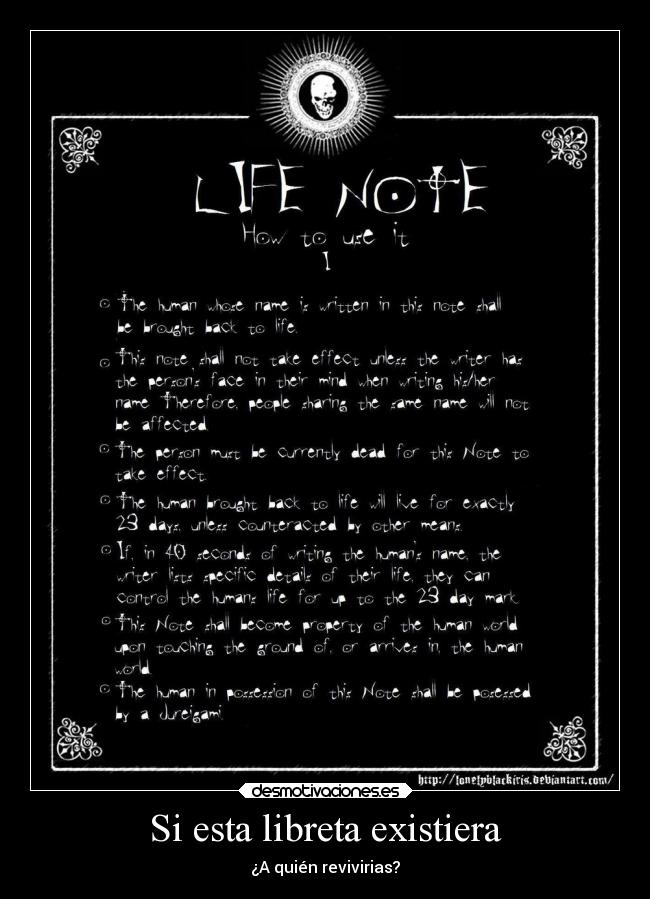 LIFE NOTE
How to use it
1
The human whose name is written in this note shall
be brought back to life.
This note shall not take effect unless the writer has
the persons face in their mind when writing his/her
name Therefore, people sharing the same name will not
be affected
The person must be currently dead for this Note to
take effect.
The human brought back to life will live for exactly
23 days, unless counteracted by other means.
If, in 40 seconds of writing the human's name, the
writer lists specific details of their life, they can
control the humans life for up to the 23 day mark.
This Note shall become property of the human world
upon touching the ground of, or arrives in, the human
world.
The human in possession of this Note shall be posessed
by a
http://lonelyblackiris.deviantart.com/
desmotivaciones.es
Si esta libreta existiera
¿A quién revivirias?